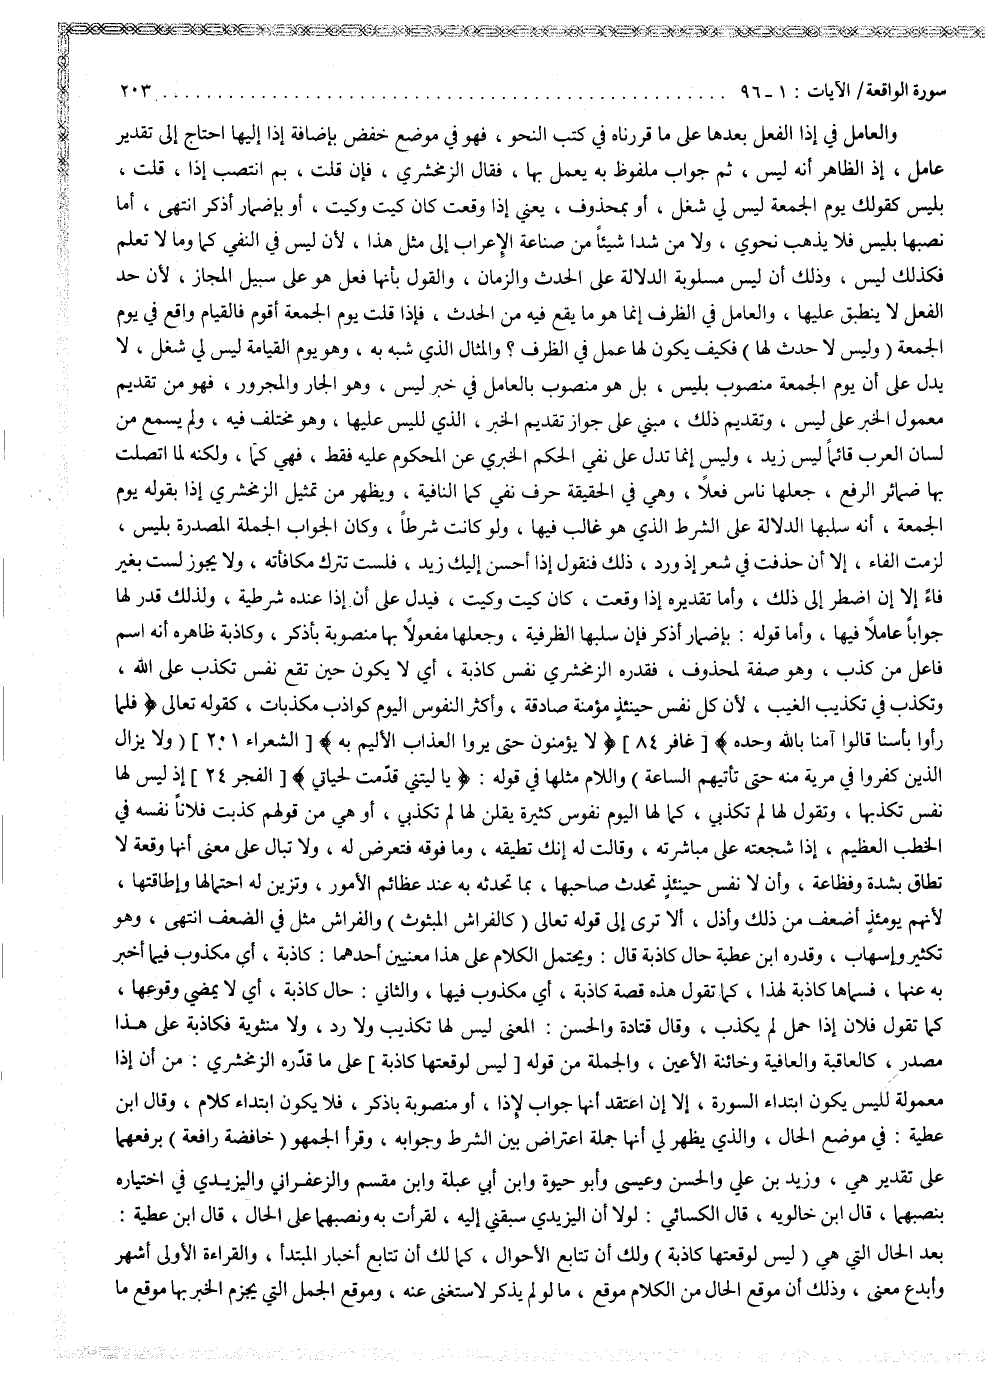 سورة الواقعة/ الآيات : ١ ـ ٩٦ . . . . . . . . . . . . . . . . . . . . . . . . . . . . . . . . . . . . . . . . . . . . . . . . . . . ٢٠٣
والعامل في إذا الفعل بعدها على ما قررناه في كتب النحو ، فهو في موضع خفض بإضافة إذا إليها احتاج إلى تقدير
عامل ، إذ الظاهر أنه ليس ، ثم جواب ملفوظ به يعمل بها ، فقال الزمخشري ، فإن قلت ، بم انتصب إذا ، قلت ،
بليس كقولك يوم الجمعة ليس لي شغل ، أو بمحذوف ، يعني إذا وقعت كان كيت وكيت ، أو بإضمار أذكر انتهى ، أما
نصبها بليس فلا يذهب نحوي ، ولا من شدا شيئاً من صناعة الإعراب إلى مثل هذا ، لأن ليس في النفي كما وما لا تعلم
فكذلك ليس ، وذلك أن ليس مسلوبة الدلالة على الحدث والزمان ، والقول بأنها فعل هو على سبيل المجاز ، لأن حد
الفعل لا ينطبق عليها ، والعامل في الظرف إنما هو ما يقع فيه من الحدث ، فإذا قلت يوم الجمعة أقوم فالقيام واقع في يوم
الجمعة ( وليس لا حدث لها ) فكيف يكون لها عمل في الظرف ؟ والمثال الذي شبه به ، وهو يوم القيامة ليس لي شغل ، لا
يدل على أن يوم الجمعة منصوب بليس ، بل هو منصوب بالعامل في خبر ليس ، وهو الجار والمجرور ، فهو من تقديم
معمول الخبر على ليس ، وتقديم ذلك ، مبني على جواز تقديم الخبر ، الذي لليس عليها ، وهو مختلف فيه ، ولم يسمع من
لسان العرب قائماً ليس زيد ، وليس إنما تدل على نفي الحكم الخبري عن المحكوم عليه فقط ، فهي كما ، ولكنه لما اتصلت
بها ضمائر الرفع ، جعلها ناس فعلاً ، وهي في الحقيقة حرف نفي كما النافية ، ويظهر من تمثيل الزمخشري إذا بقوله يوم
الجمعة ، أنه سلبها الدلالة على الشرط الذي هو غالب فيها ، ولو كانت شرطاً ، وكان الجواب الجملة المصدرة بليس ،
لزمت الفاء ، إلا أن حذفت في شعر إذ ورد ، ذلك فنقول إذا أحسن إليك زيد ، فلست تترك مكافأته ، ولا يجوز لست بغير
فاءٍ إلا إن اضطر إلى ذلك ، وأما تقديره إذا وقعت ، كان كيت وكيت ، فيدل على أن إذا عنده شرطية ، ولذلك قدر لها
جواباً عاملاً فيها ، وأما قوله : بإضمار أذكر فإن سلبها الظرفية ، وجعلها مفعولاً بها منصوبة بأذكر ، وكاذبة ظاهره أنه اسم
فاعل من كذب ، وهو صفة لمحذوف ، فقدره الزمخشري نفس كاذبة ، أي لا يكون حين تقع نفس تكذب على الله ،
وتكذب في تكذيب الغيب ، لأن كل نفس حينئذٍ مؤمنة صادقة ، وأكثر النفوس اليوم كواذب مكذبات ، كقوله تعالى ﴿ فلما
رأوا بأسنا قالوا آمنا بالله وحده ﴾ [ غافر ٨٤ ] ﴿ لا يؤمنون حتى يروا العذاب الأليم به ﴾ [ الشعراء ٢٠١ ] ( ولا يزال
الذين كفروا في مرية منه حتى تأتيهم الساعة ) واللام مثلها في قوله : ﴿ يا ليتني قدّمت لحياتي ﴾ [ الفجر ٢٤ ] إذ ليس لها
نفس تكذبها ، وتقول لها لم تكذبي ، كما لها اليوم نفوس كثيرة يقلن لها لم تكذبي ، أو هي من قولهم كذبت فلاناً نفسه في
الخطب العظيم ، إذا شجعته على مباشرته ، وقالت له إنك تطيقه ، وما فوقه فتعرض له ، ولا تبال على معنى أنها وقعة لا
تطاق بشدة وفظاعة ، وأن لا نفس حينئذٍ تحدث صاحبها ، بما تحدثه به عند عظائم الأمور ، وتزين له احتمالها وإطاقتها ،
لأنهم يومئذٍ أضعف من ذلك وأذل ، ألا ترى إلى قوله تعالى ( كالفراش المبثوث ) والفراش مثل في الضعف انتهى ، وهو
تكثير وإسهاب ، وقدره ابن عطية حال كاذبة قال : ويحتمل الكلام على هذا معنيين أحدهما : كاذبة ، أي مكذوب فيما أخبر
به عنها ، فسماها كاذبة لهذا ، كما تقول هذه قصة كاذبة ، أي مكذوب فيها ، والثاني : حال كاذبة ، أي لا يمضي وقوعها ،
كما تقول فلان إذا حمل لم يكذب ، وقال قتادة والحسن : المعنى ليس لها تكذيب ولا رد ، ولا مثنوية فكاذبة على هـذا
مصدر ، كالعاقبة والعافية وخائنة الأعين ، والجملة من قوله [ ليس لوقعتها كاذبة ] على ما قدّره الزمخشري : من أن إذا
معمولة لليس يكون ابتداء السورة ، إلا إن اعتقد أنها جواب لإذا ، أو منصوبة باذكر ، فلا يكون ابتداء كلام ، وقال ابن
عطية : في موضع الحال ، والذي يظهر لي أنها جملة اعتراض بين الشرط وجوابه ، وقرأ الجمهو ( خافضة رافعة ) برفعهما
على تقدير هي ، وزيد بن علي والحسن وعيسى وأبو حيوة وابن أبي عبلة وابن مقسم والزعفراني واليزيـدي في اختياره
بنصبهما ، قال ابن خالويه ، قال الكسائي : لولا أن اليزيدي سبقني إليه ، لقرأت به ونصبهما على الحال ، قال ابن عطية :
بعد الحال التي هي ( ليس لوقعتها كاذبة ) ولك أن تتابع الأحوال ، كما لك أن تتابع أخبار المبتدأ ، والقراءة الأولى أشهر
وأبدع معنى ، وذلك أن موقع الحال من الكلام موقع ، ما لو لم يذكر لاستغنى عنه ، وموقع الجمل التي يجزم الخبر بها موقع ما